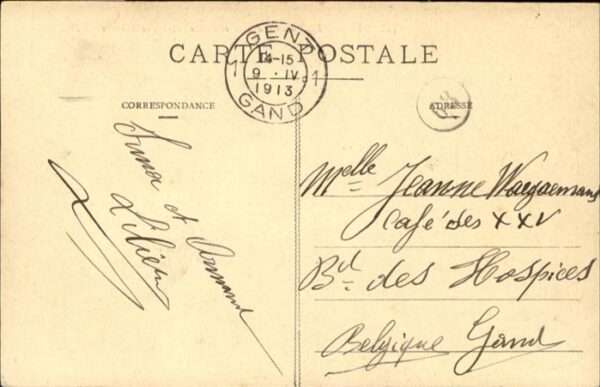 CARTE POSTALE
GENT
14-15
9 · IV
1913
GAND
1 1
CORRESPONDANCE
ADRESSE
et Armand
Melle Jeanne
Café des XXV
Bd des Hospices
Belgique Gand